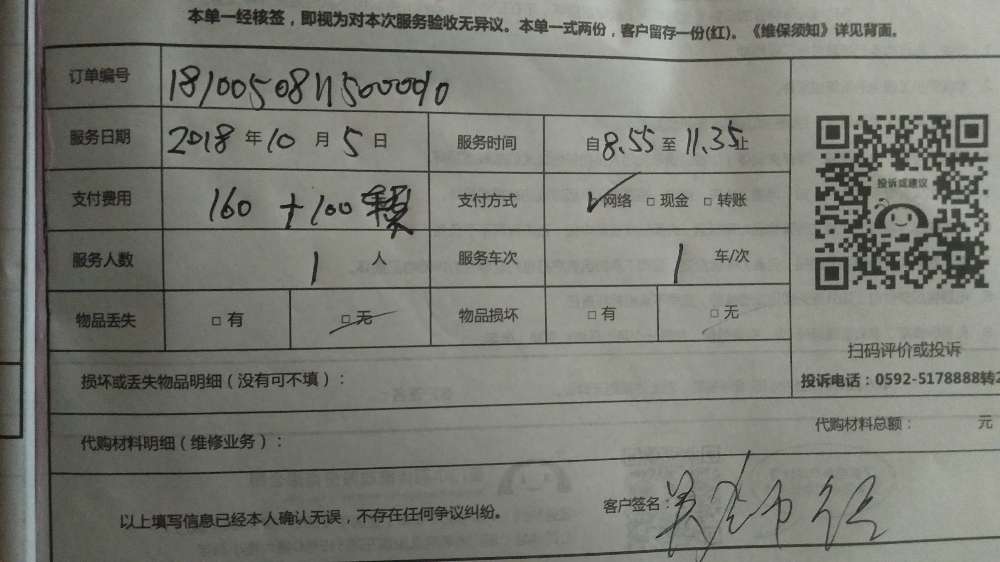 本单一经核签，即视为对本次服务验收无异议。本单一式两份，客户留存一份(红)。《维保须知》详见背面。
订单编号 18100508115000010
服务日期 2018 年 10 月 5 日 服务时间 自 8.55 至 11.35 止
支付费用 160 + 100 支付方式 网络 □ 现金 □ 转账
服务人数 1 人 服务车次 1 车/次
物品丢失 □ 有 □ 无 物品损坏 □ 有 □ 无
投诉或建议
扫码评价或投诉
投诉电话：0592-5178888转2
损坏或丢失物品明细（没有可不填）：
代购材料明细（维修业务）： 代购材料总额： 元
以上填写信息已经本人确认无误，不存在任何争议纠纷。 客户签名：